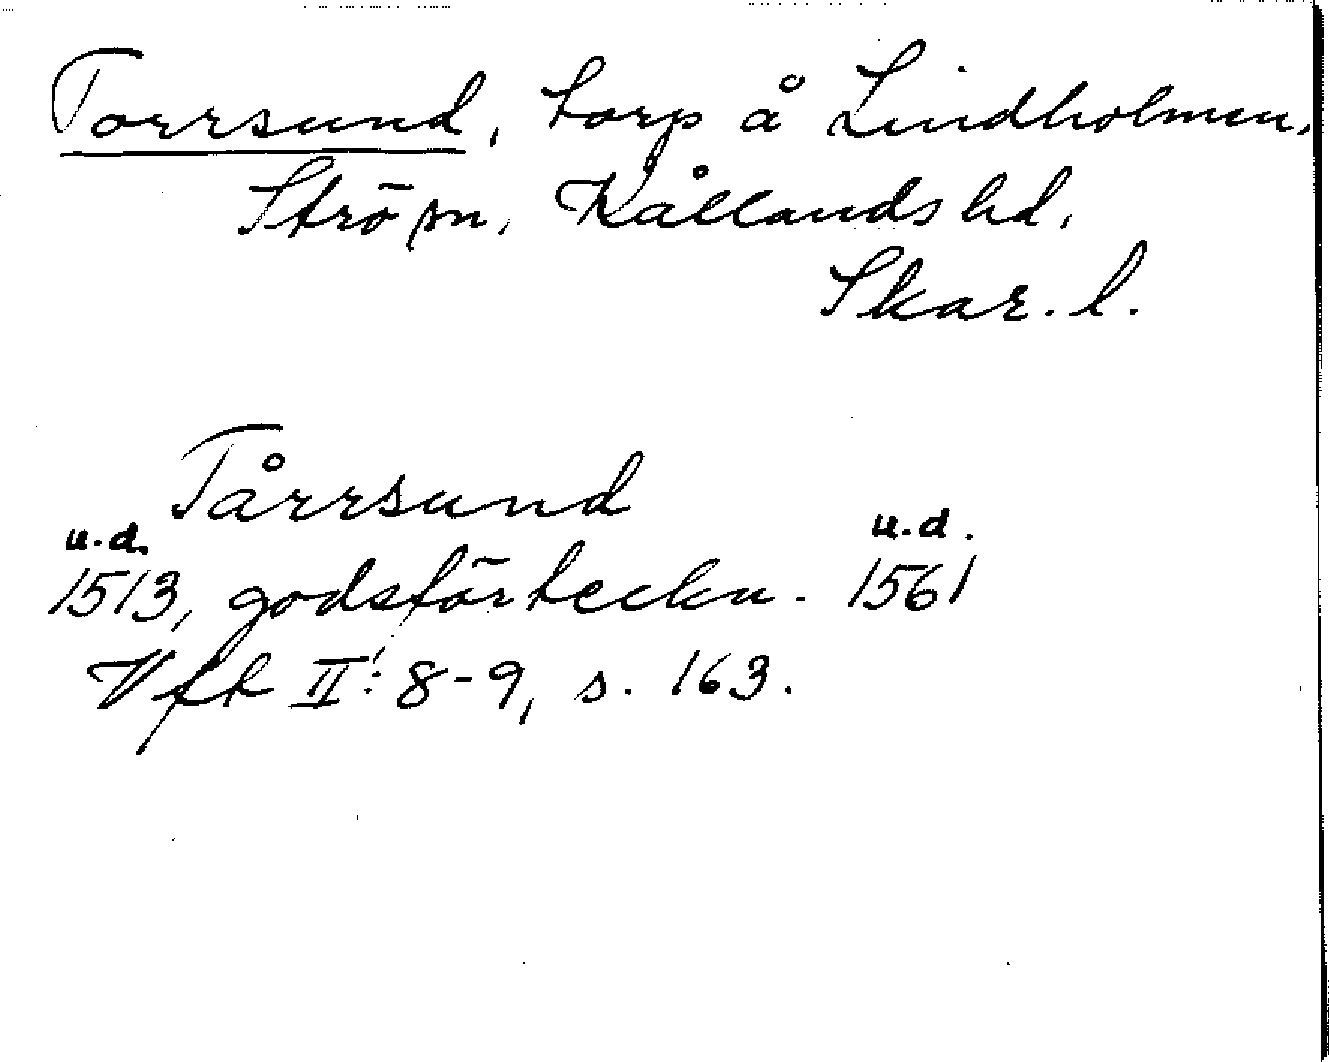 Torrsund, torp å Lindholmen,
Strö sn, Kållands hd,
Skar. l.
Tårrsund
u.d. u.d.
1513, godsförteckn. 1561
Vft II: 8-9, s. 163.